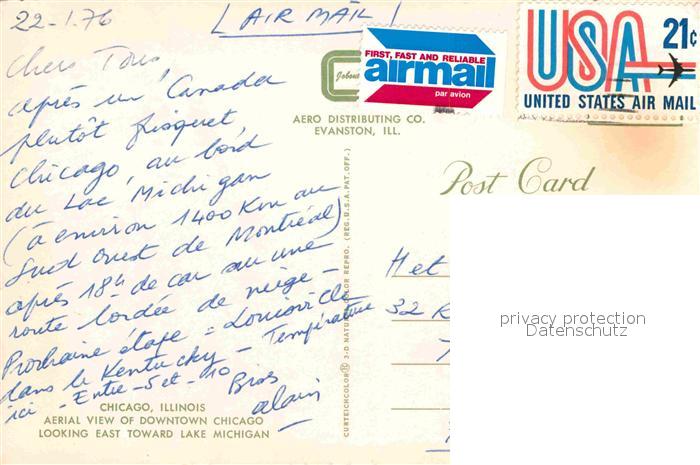 22-1.76
[AIR MAIL]
Chers Tous,
après un Canada
plutôt frisquet,
Chicago, au bord
du Lac Michigan
(à environ 1400 Km au
Sud Ouest de Montréal)
après 18h de car sur une
route bordée de neige -
Prochaine étape = Louisville
dans le Kentucky - Température
ici - Entre -5 et -10
Bises
alain
FIRST, FAST AND RELIABLE
airmail
par avion
USA 21¢
UNITED STATES AIR MAIL
AERO DISTRIBUTING CO.
EVANSTON, ILL.
Post Card
CURTEICHCOLOR® 3-D NATURAL COLOR REPRO. (REG. U.S.A. PAT. OFF.)
Het
32
privacy protection
Datenschutz
CHICAGO, ILLINOIS
AERIAL VIEW OF DOWNTOWN CHICAGO
LOOKING EAST TOWARD LAKE MICHIGAN